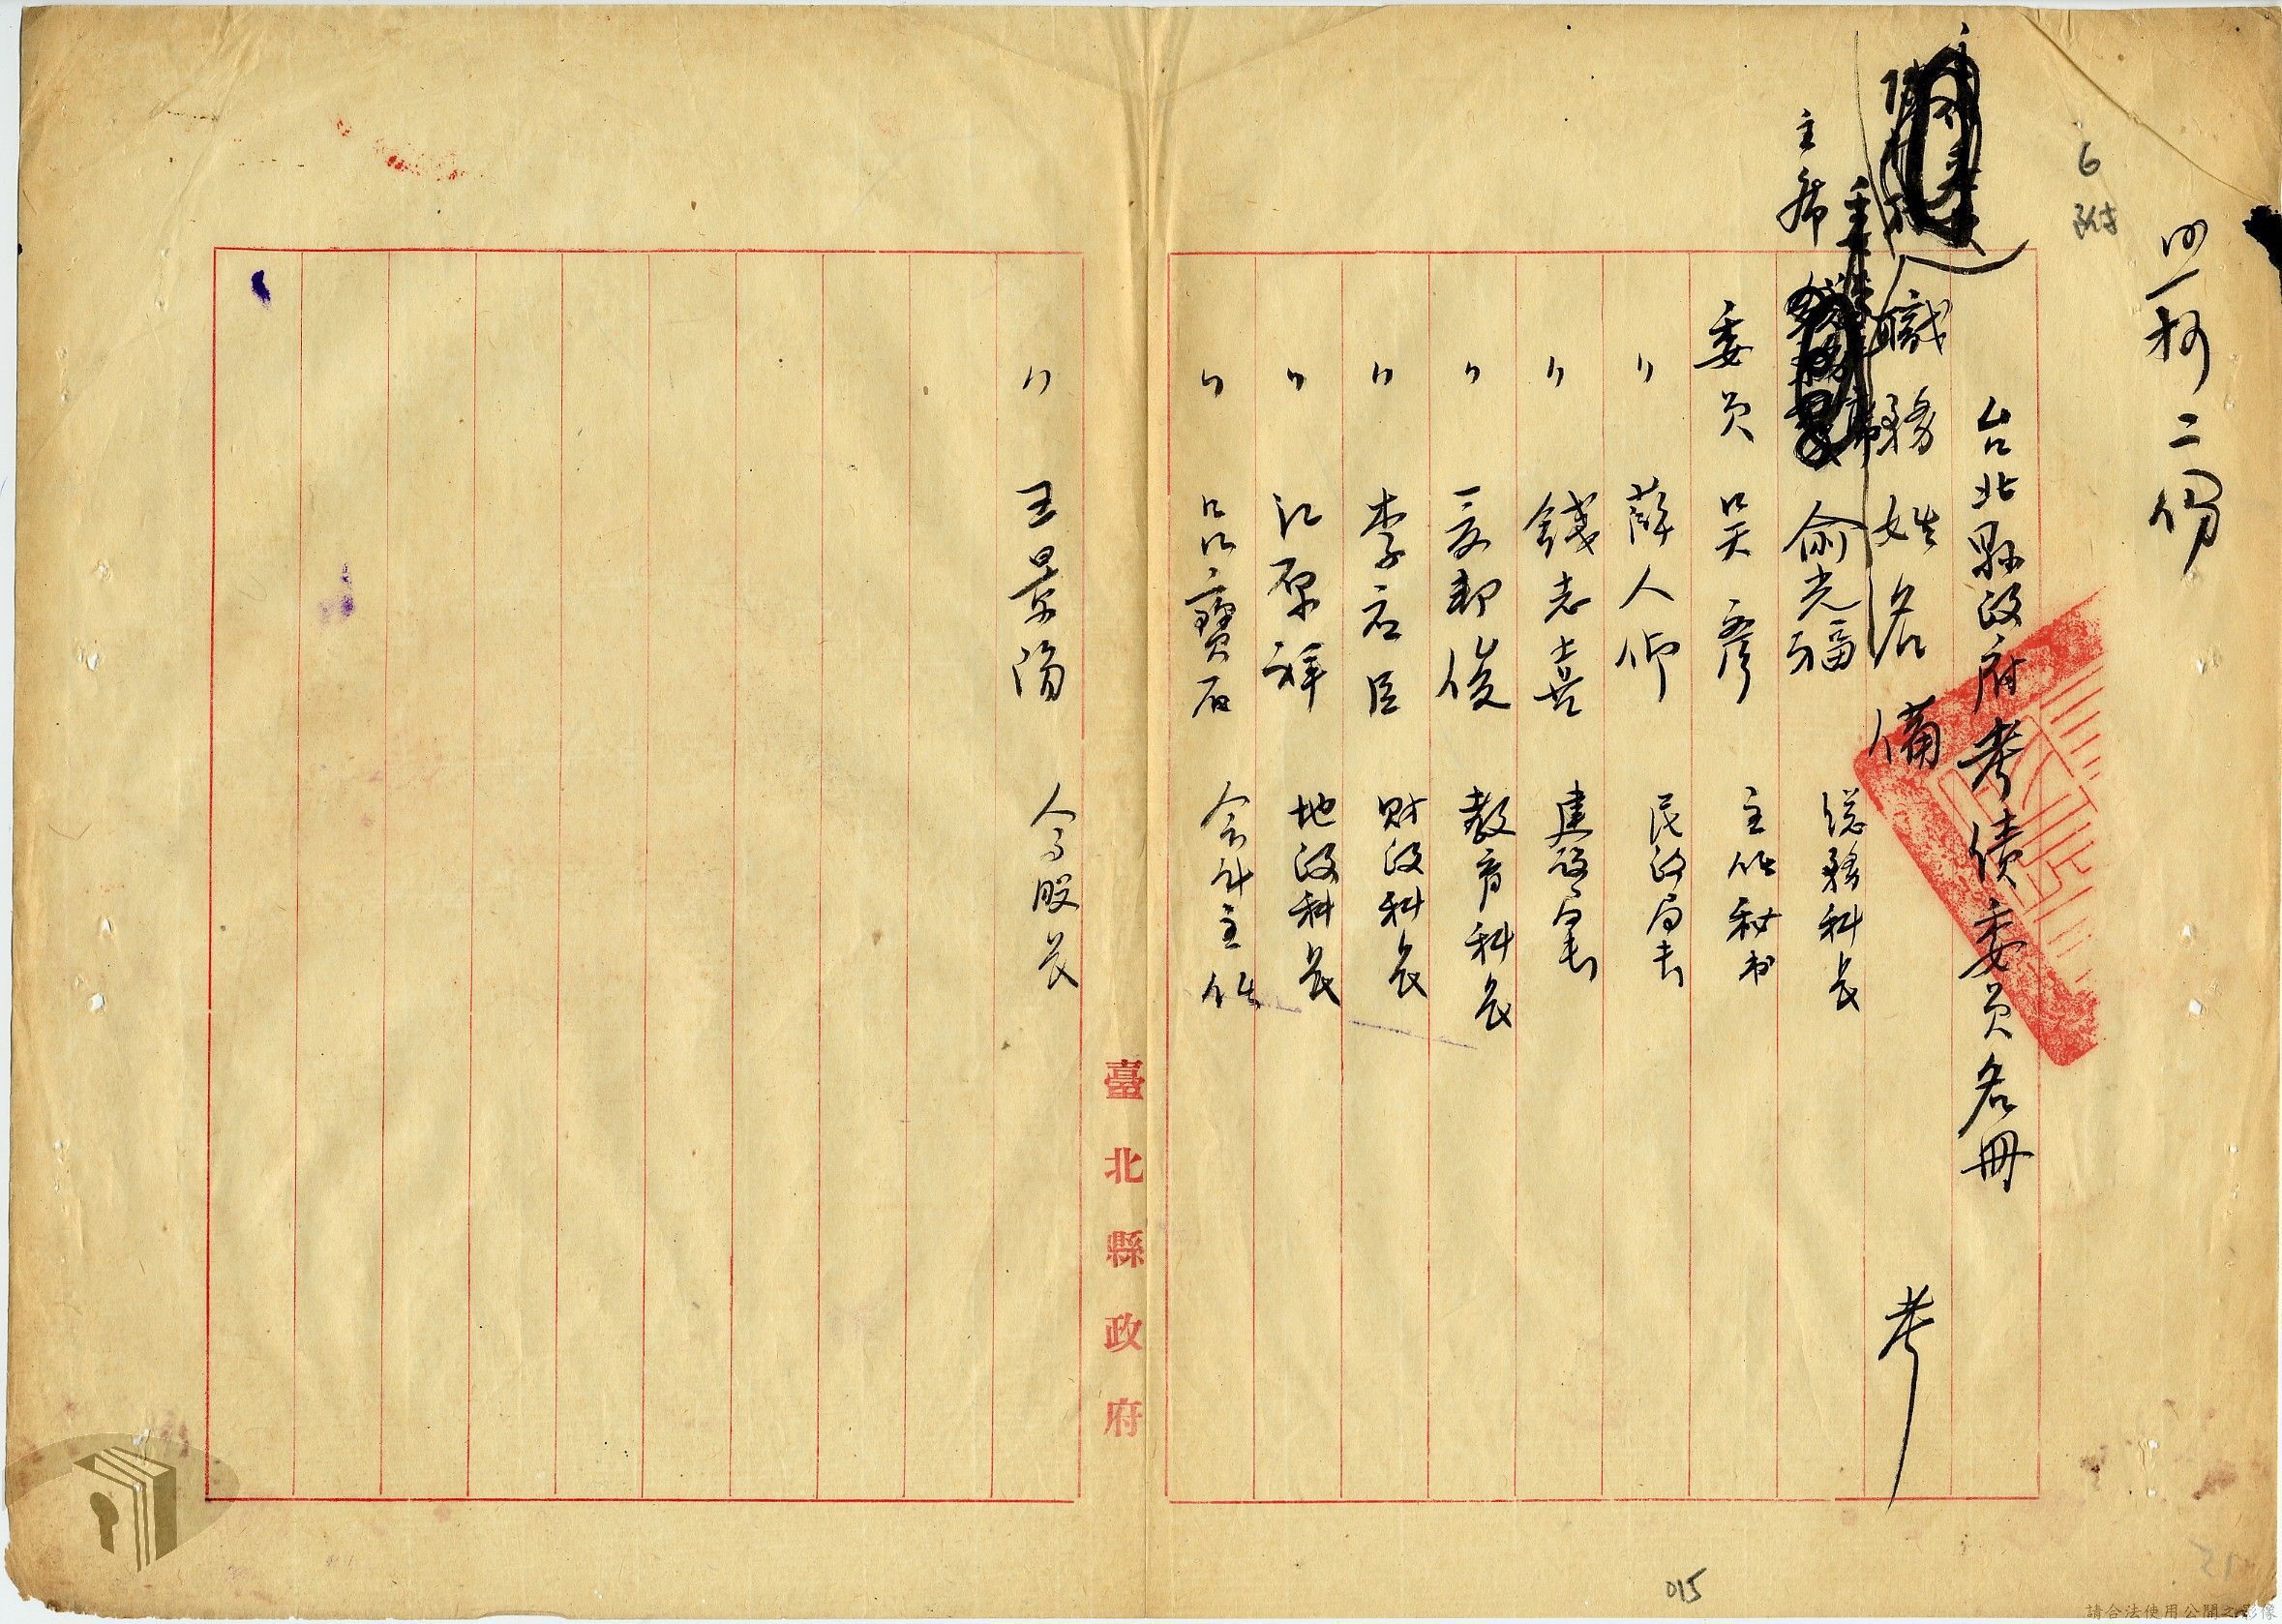 照抄二份
6
附
台北縣政府考績委員名冊
職務 姓名 備 考
主席 俞光福 總務科長
委員 吳彥 主任秘书
〃 薛人仰 民政局長
〃 錢志喜 建設局長
〃 邦俊 教育科長
〃 李君臣 財政科長
〃 江厚祥 地政科長
〃 呂寶 会計主任
〃 王景陽 人事股長
臺北縣政府
015
21
請合法使用公開之影像